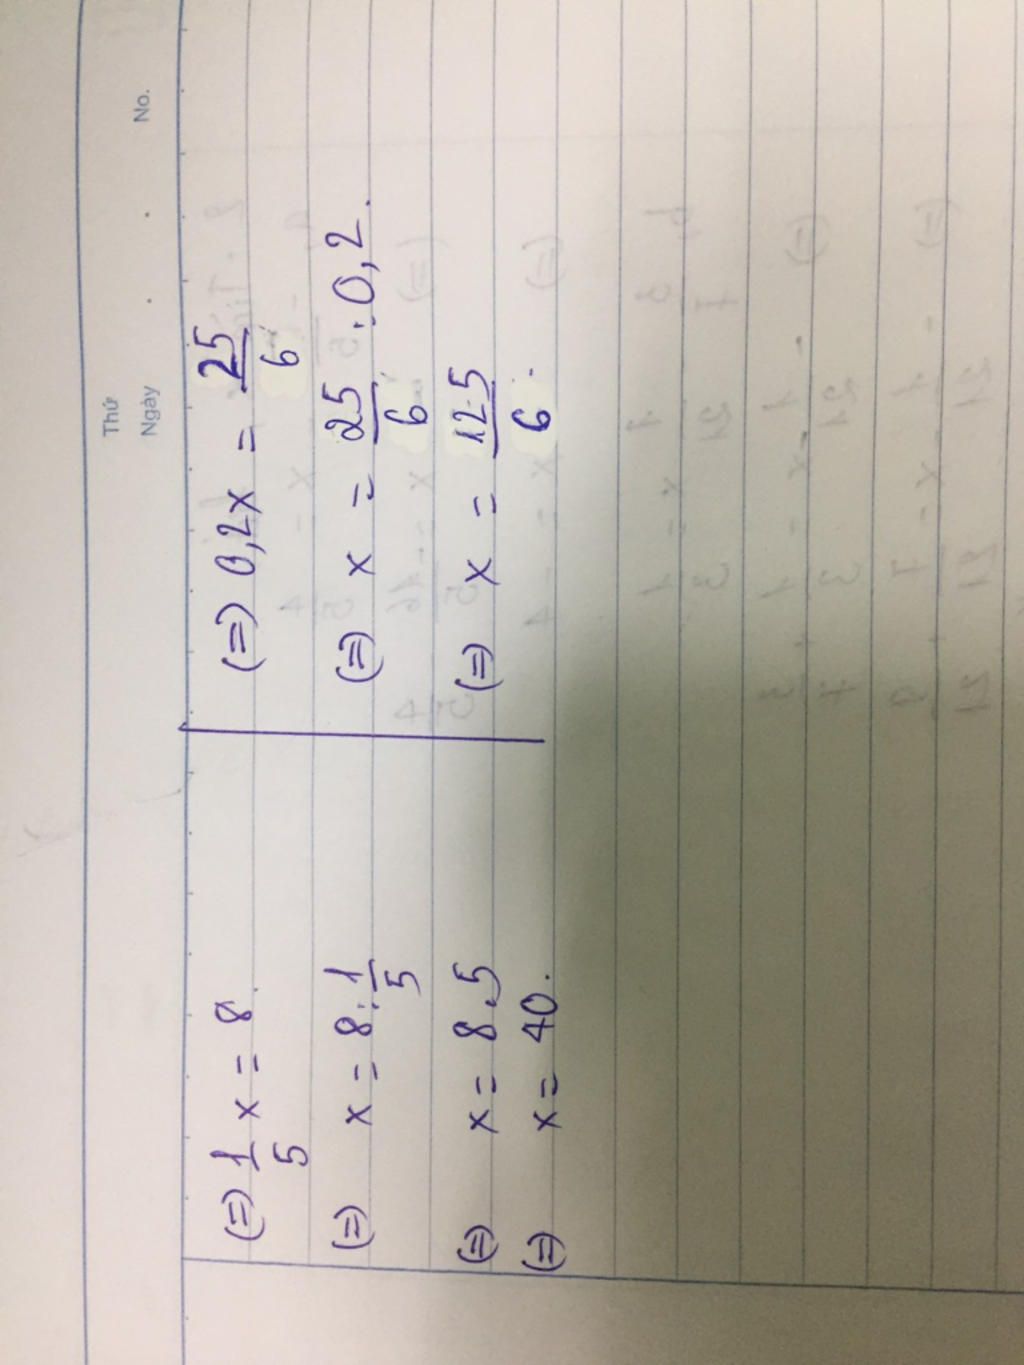 Thứ
Ngày . . No.
(=) 1/5 x = 8.
(=) x = 8 : 1/5
(=) x = 8.5
(=) x = 40.
(=) 0,2x = 25/6
(=) x = 25/6 : 0,2.
(=) x = 125/6.